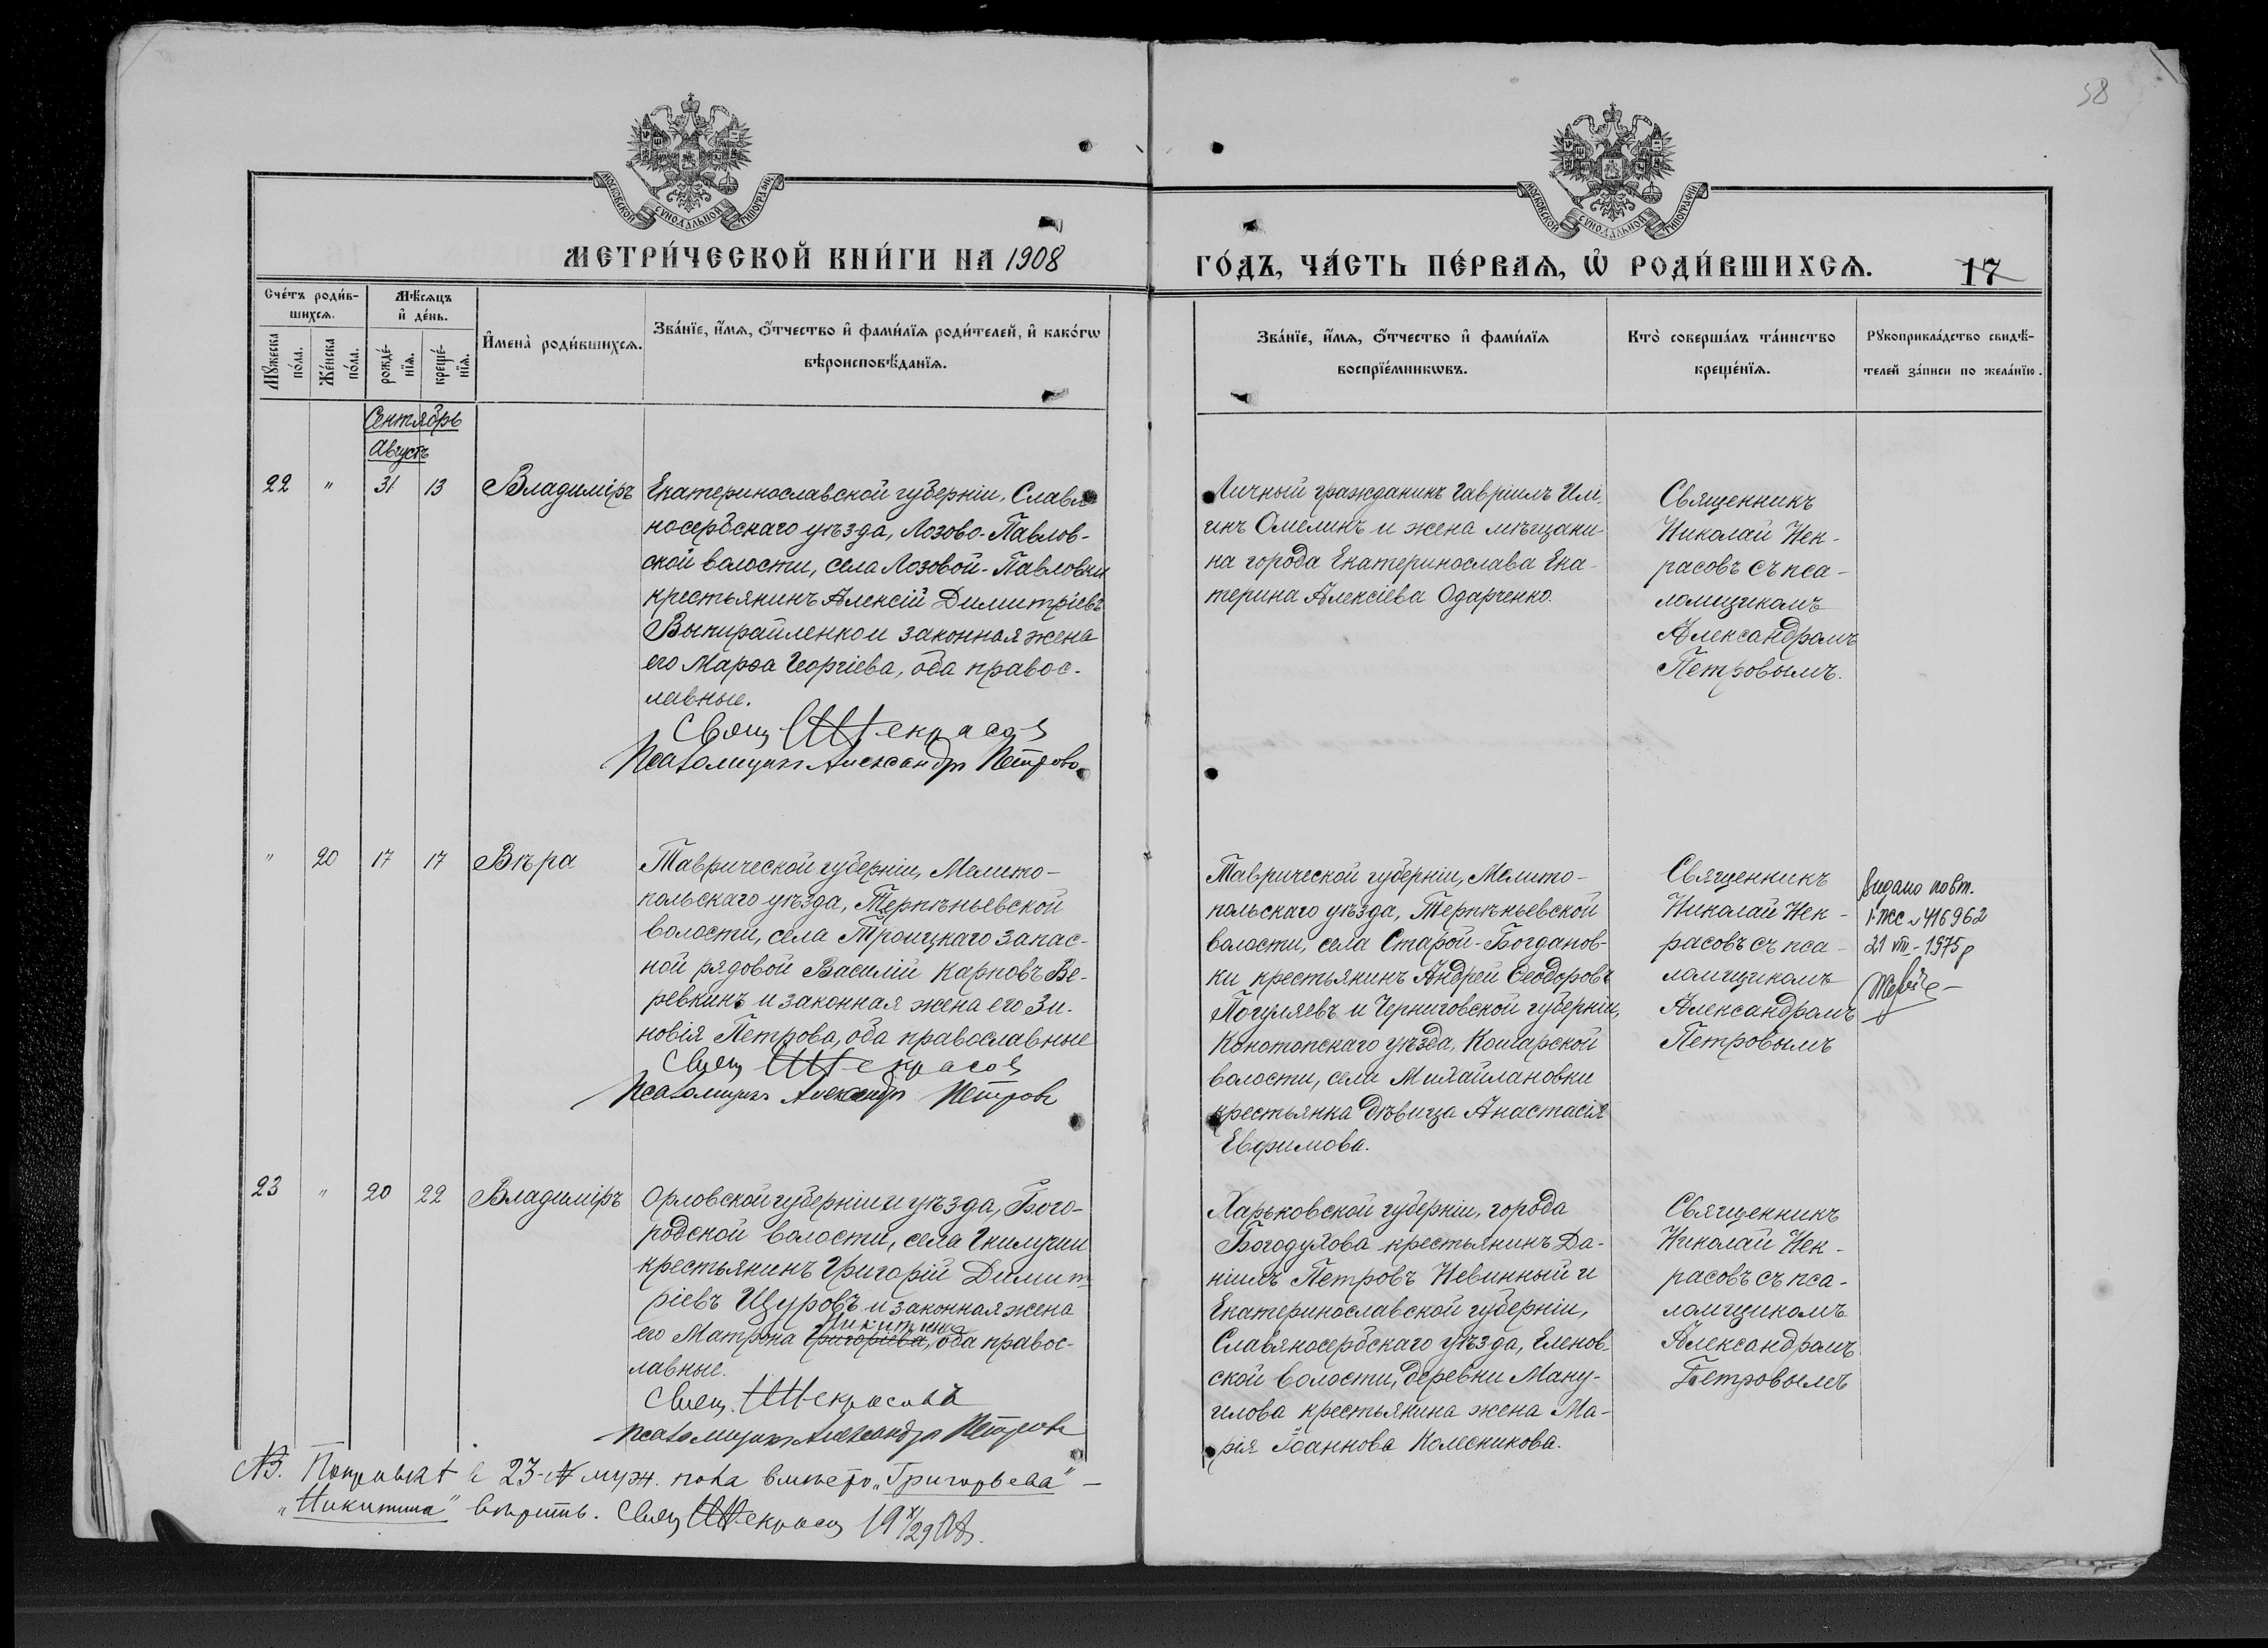 58
МОСКОВСКОЙ СѴНОДАЛЬНОЙ ТИПОГРАФІИ
МОСКОВСКОЙ СѴНОДАЛЬНОЙ ТИПОГРАФІИ
МЕТРИ́ЧЕСКОЙ КНИ́ГИ НА 1908
ГО́ДЪ, ЧА́СТЬ ПЕ́РВАѦ, Ѡ҆ РОДИ́ВШИХСѦ.
17
Сче́тъ роди́в-
шихсѧ.
Мꙋ́жеска
по́ла.
Же́нска
по́ла.
Мѣ́сѧцъ
и҆ де́нь.
рожде́-
нїѧ.
креще́-
нїѧ.
И҆мена̀ роди́вшихсѧ.
Зва́нїе, и҆́мѧ, ѻ҆́тчество и҆ фами́лїѧ роди́телей, и҆ како́гѡ
вѣроисповѣ́данїѧ.
Зва́нїе, и҆́мѧ, ѻ҆́тчество и҆ фами́лїѧ
воспрїе́мникѡвъ.
Кто̀ соверша́лъ та́инство
креще́нїѧ.
Рꙋкоприкла́дство свидѣ́-
телей за́писи по жела́нїю.
Сентябрь
Августъ
22 " 31 13 Владиміръ
Екатеринославской губерніи, Славя
носербскаго уѣзда, Лозово-Павлов-
ской волости, села Лозовой-Павловки
крестьянинъ Алексій Димитріевъ
Выпирайленко и законная жена
его Марѳа Георгіева, оба правос-
лавные.
Свящ Н Некрасовъ
Псаломщикъ Александръ Петровъ
Личный гражданинъ Гавріилъ Иль
инъ Омелинъ и жена мѣщани-
на города Екатеринослава Ека-
терина Алексіева Одарченко.
Священникъ
Николай Нек-
расовъ съ пса-
ломщикомъ
Александромъ
Петровымъ.
" 20 17 17 Вѣра
Таврической губерніи, Мелито-
польскаго уѣзда, Терпѣньевской
волости, села Троицкаго запас-
ной рядовой Василій Карповъ Ве-
ревкинъ и законная жена его Зи-
новія Петрова, оба православные
Свящ Н Некрасовъ
Псаломщикъ Александръ Петровъ
Таврической губерніи, Мелито-
польскаго уѣзда, Терпѣньевской
волости, села Старой-Богданов-
ки крестьянинъ Андрей Ѳеодоровъ
Погуляевъ и Черниговской губерніи,
Конотопскаго уѣзда, Кошарской
волости, села Михайлановки
крестьянка дѣвица Анастасія
Евфимова.
Священникъ
Николай Нек-
расовъ съ пса-
ломщикомъ
Александромъ
Петровымъ
Видано повт.
І-ЖС №416962
21 VIII-1975р
23 " 20 22 Владиміръ
Орловской губерніи и уѣзда, Бого-
родской волости, села Гнилуши
крестьянинъ Григорій Димит
ріевъ Щуровъ и законная жена
Никитина
его Матрона Григоріева, оба правос-
лавные.
Свящ. Н Некрасовъ
Псаломщикъ Александръ Петровъ
Харьковской губерніи, города
Богодухова крестьянинъ Да-
ніилъ Петровъ Невинный и
Екатеринославской губерніи,
Славяносербскаго уѣзда, Еленов-
ской волости, деревни Ману-
илова крестьянина жена Ма-
рія Іоаннова Колесникова.
Священникъ
Николай Нек-
расовъ съ пса-
ломщикомъ
Александромъ
Петровымъ
NB. Поправка в 23-№ муж. пола вместо "Григорьева" —
"Никитина" вѣрить. Свящ Н Некрасов